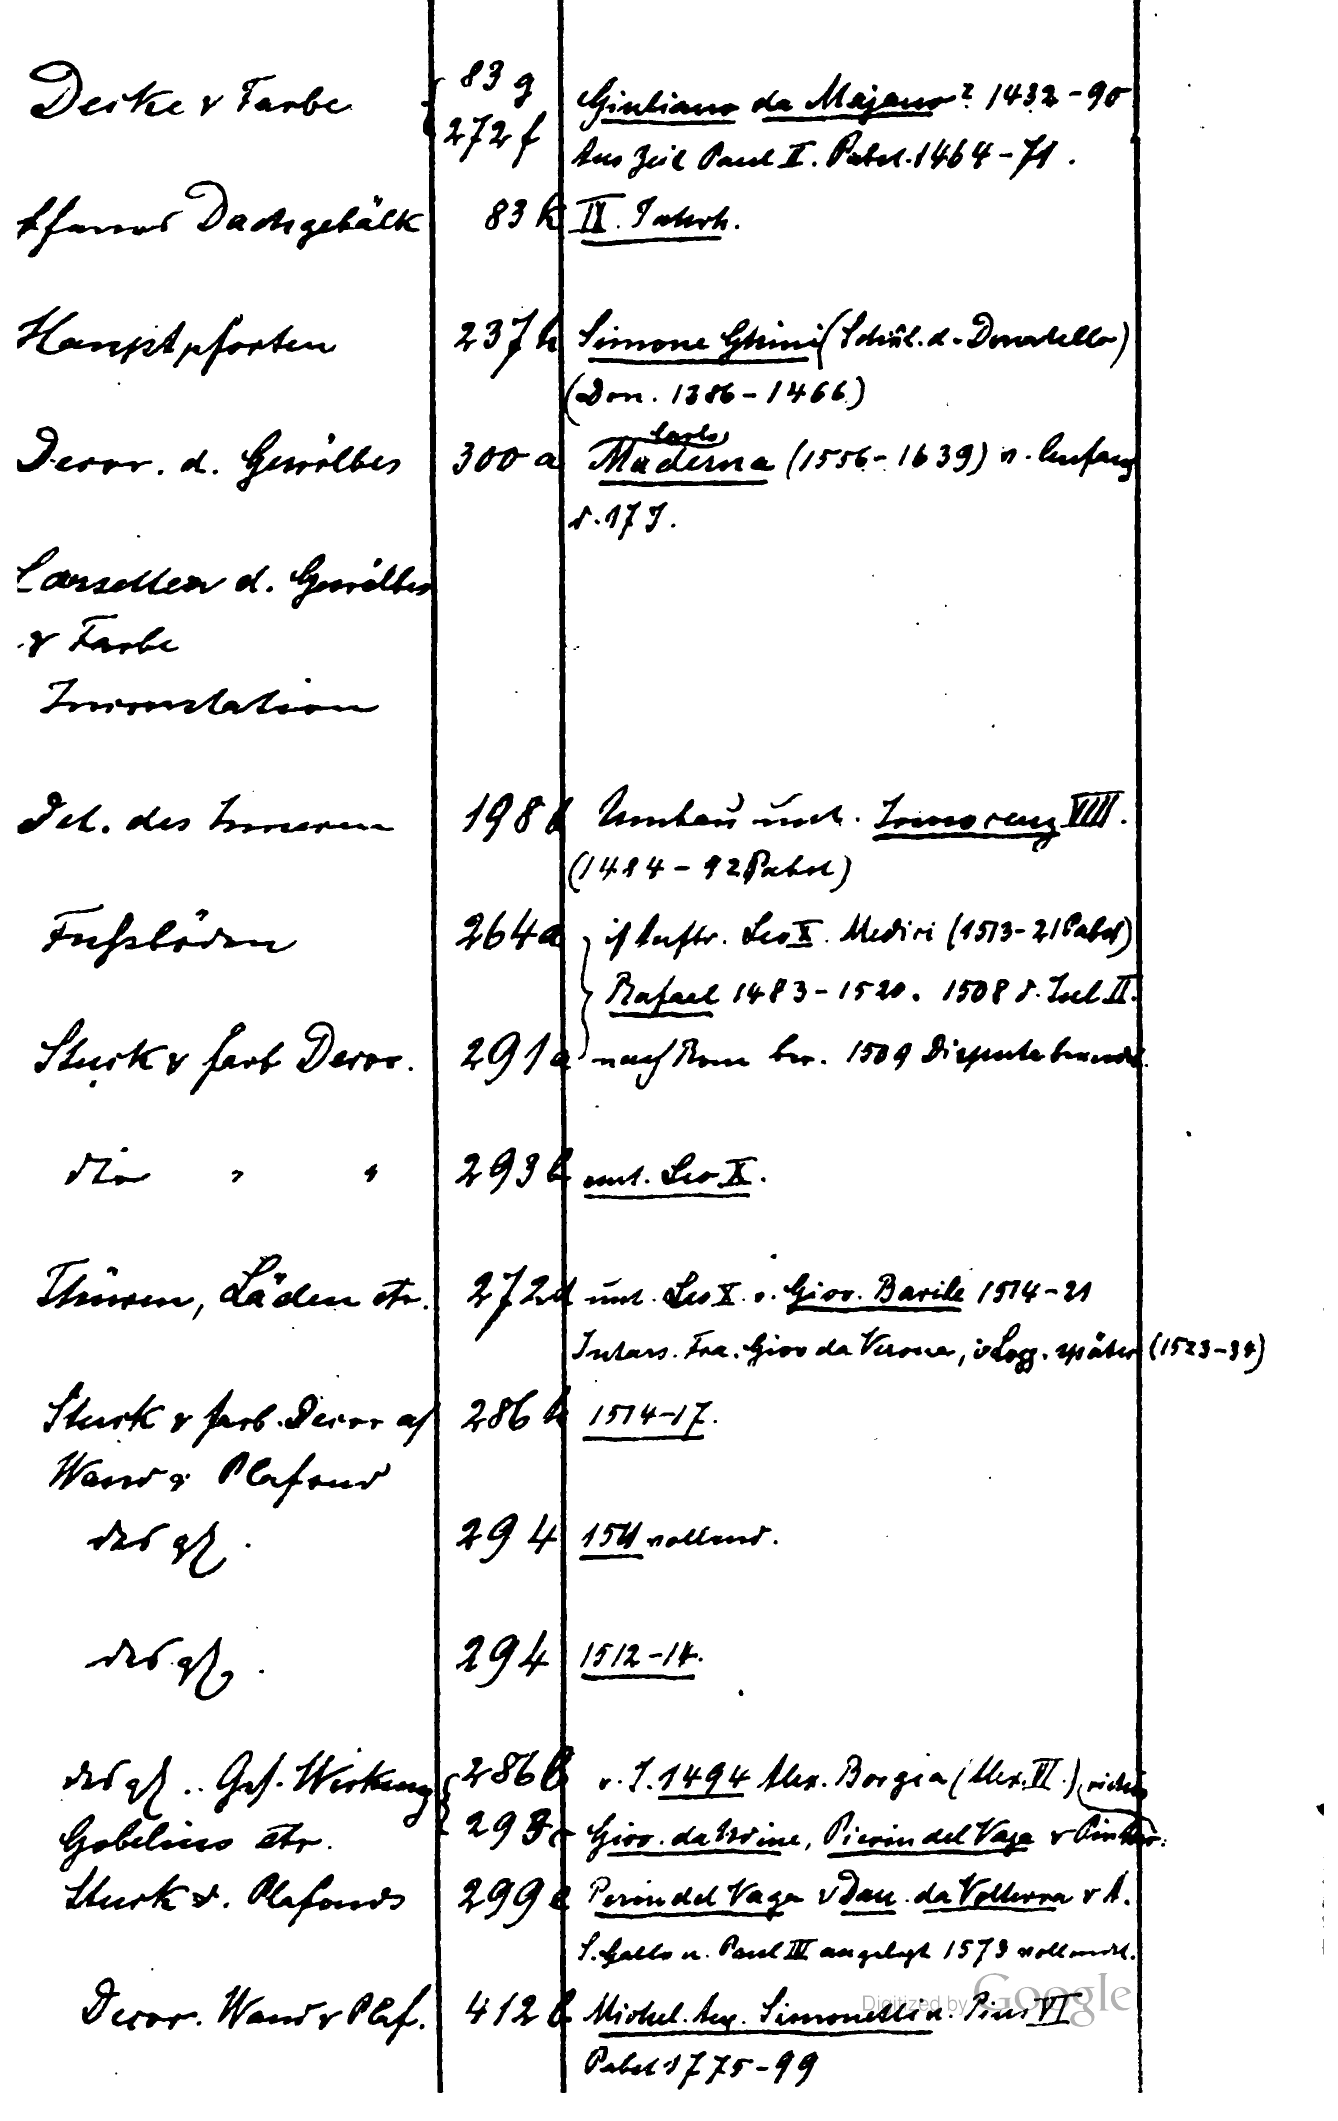 Decke & Farbe 83 g Giuliano da Majano? 1432-90
272 f Aus Zeit Paul II. Pabst. 1464-71.
offenes Dachgebälk 83 k IX. Jahrh.
Hauptpforten 237 h Simone Ghini (Schül. d. Donatello)
(Don. 1386-1466)
Carlo
Decor. d. Gewölbes 300 a Maderna (1556-1639) v. Anfang
d. 17 J.
Cassetten d. Gewölbes
& Farbe
Incrustation
Det. des Inneren 198 Umbau unt. Innocenz VIII.
(1484-92 Pabst)
Fußböden 264 a Auftr. Leo X. Medici (1513-21 Pabst)
Rafael 1483-1520. 1508 d. Jul II.
Stuck & farb Decor. 291 a nach Rom ber. 1509 Disputa
dto " " 293 b unt. Leo X.
Thüren, Läden etc. 272 d unt. Leo X. v. Giov. Barile 1514-21
Intars. Fra. Giov da Verona, i. Logg. später (1523-34)
Stuck & farb. Decor auf 286 h 1514-17.
Wand & Plafond
desgl. 294 1541 vollend.
desgl. 294 1512-14.
desgl.. Ges. Wirkung 286 b v. J. 1494 Alex. Borgia (Alex. VI.)
Gobelins etc. 293 c Giov. da Udine, Pierin del Vaga &
Stuck d. Plafonds 299 e Perin del Vaga & Dan. da Volterra & A.
S. Gallo u. Paul III angelegt 1573 vollendet.
Decor. Wand & Plaf. 412 b Michel. Ang. Simonetti u. Pius VI
Pabst 1775-99
Digitized by Google